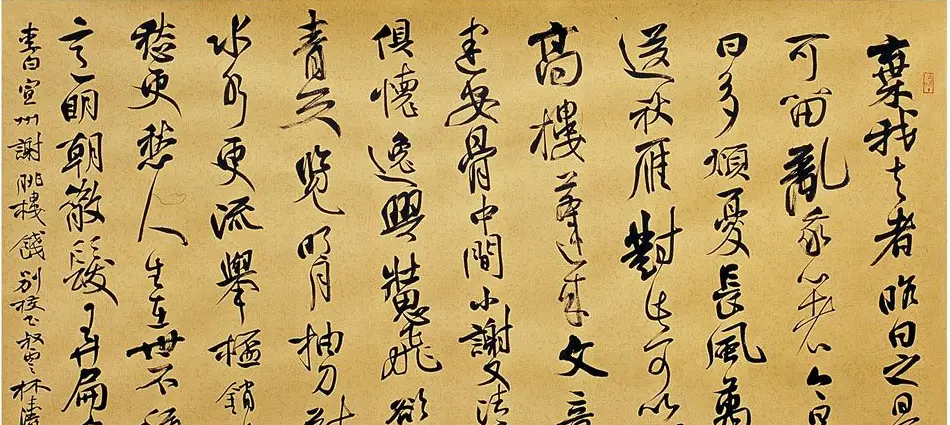 棄我去者昨日之日
可留亂我心者今日
日多煩憂長風萬
送秋雁對此可以
高樓蓬萊文章
建安骨中間小謝又清
俱懷逸興壯思飛欲
青天覽明月抽刀斷
水水更流舉杯銷
愁更愁人生在世不稱
意明朝散髮弄扁
李白宣州謝朓樓餞別校書叔雲 林濤